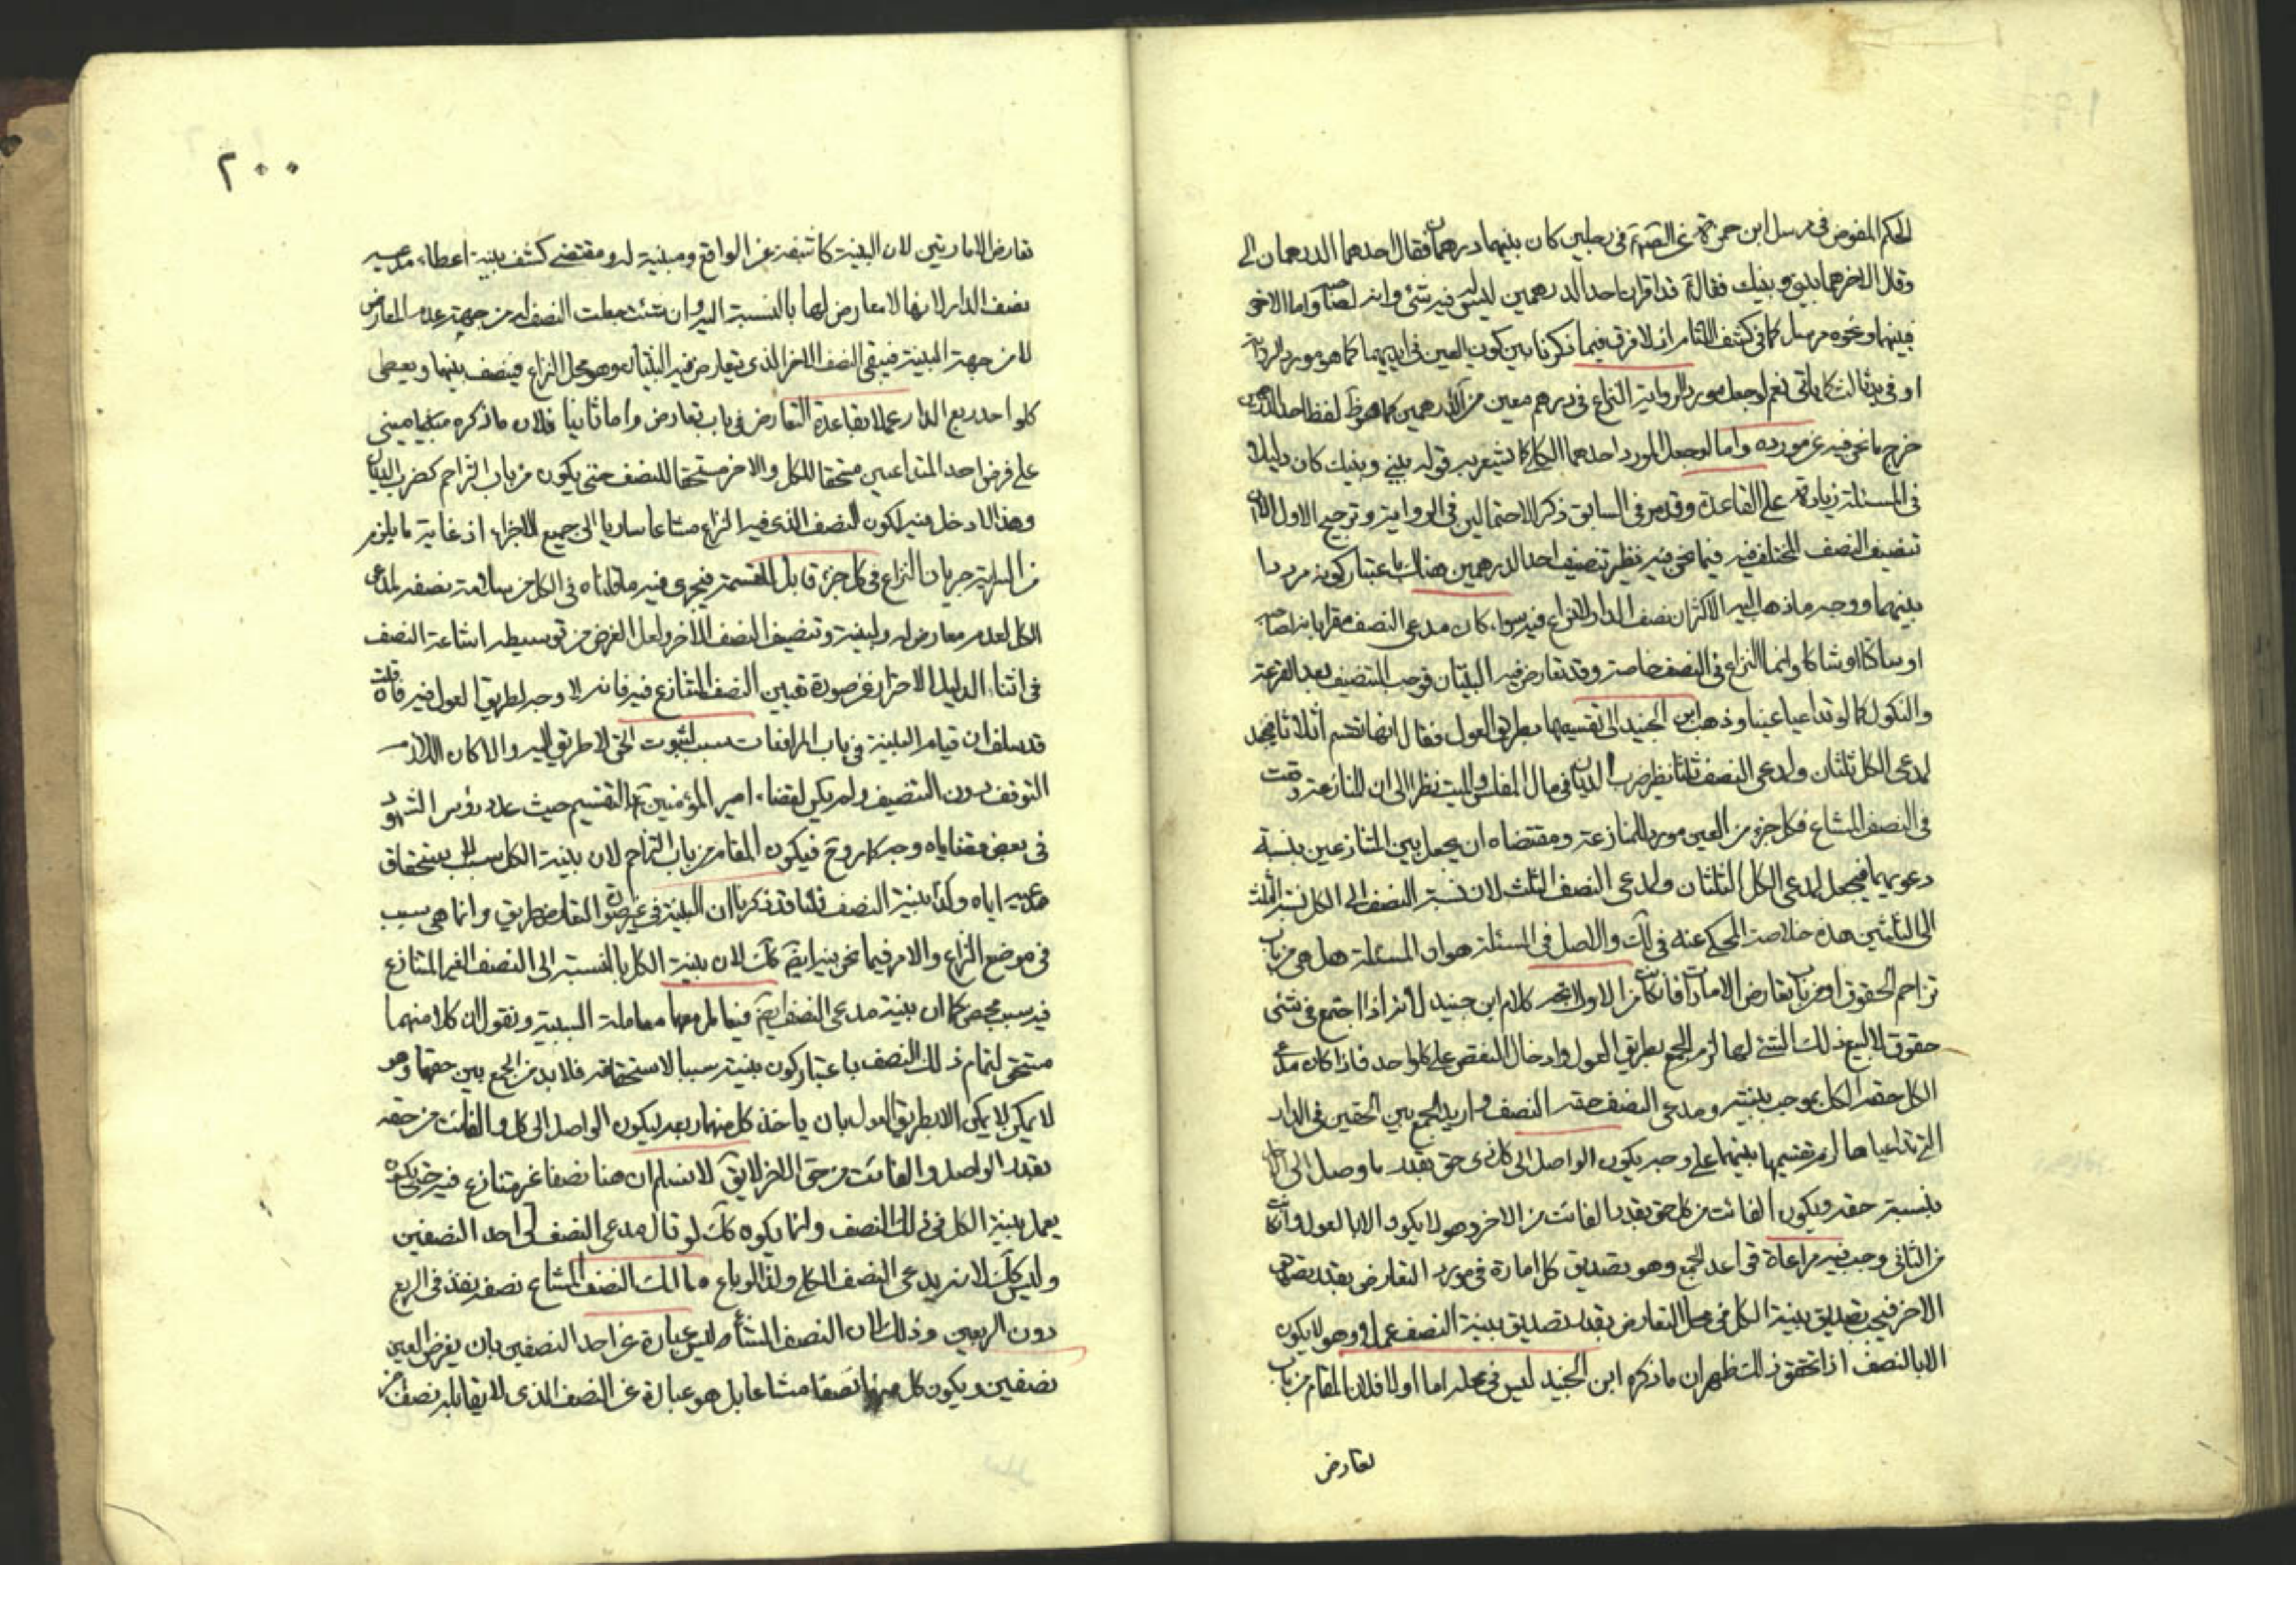 الحكم المفوض في مرسل ابن حمزة عن الصم في رجلين كان بينهما درهمان فقال احدهما الدرهمان لي
وقال الاخر هما بيني وبينك فقال قد اقر ان احد الدرهمين ليس له فيه شئ وانه لصاحبه واما الاخر
فبينهما ونحوه مرسل كما في كشف اللثام اذ لا فرق فيما ذكرنا بين كون العين في ايديهما كما هو مورد الرواية
او في يد ثالث كما ياتي نعم لو جعل مورد الرواية النزاع في درهم معين من الدرهمين كما هو ظ لفظ احد الدرهمين
خرج ما نحن فيه عن مورده واما لو جعل المورد احدهما الكلي كما يشعر به قوله بيني وبينك كان دليلا
في المسئلة زيادة على القاعدة وقد مر في السابق ذكر الاحتمالين في الرواية وترجيح الاول الا ان
تنصيف النصف المختلف فيه فيما نحن فيه نظير تنصيف احد الدرهمين هناك باعتبار كونه مرددا
بينهما ووجه ما ذهب اليه الاكثر ان نصف الدار لا نزاع فيه سواء كان مدعي النصف مقرا بانه لصاحبه
او ساكتا او شاكا وانما النزاع في النصف خاصة وقد تعارض فيه البينتان فوجب التنصيف بعد القرعة
والنكول كما لو تداعيا عينا وذهب ابن الجنيد الى تقسيمها بطريق العول فقال انها تقسم اثلاثا فيجعل
لمدعي الكل ثلثان ولمدعي النصف ثلثا نظير ضرب الديان في مال المفلس والميت نظرا الى ان المنازعة وقعت
في النصف المشاع فكل جزء من العين مورد المنازعة ومقتضاه ان يجعل بين المتنازعين بنسبة
دعويهما فيجعل لمدعي الكل الثلثان ولمدعي النصف الثلث لان نسبة النصف الى الكل نسبة الثلث
الى الثلثين هذه خلاصة المحكي عنه في لك والاصل في المسئلة هو ان المسئلة هل هي من باب
تزاحم الحقوق او من باب تعارض الامارات فان كانت من الاول اتجه كلام ابن جنيد لانه اذا اجتمع في شئ
حقوق لا يسع ذلك الشئ لها لزم الجمع بطريق العول وادخال النقص على كل واحد فاذا كان مدعي
الكل حقه الكل بموجب بينته ومدعي النصف حقه النصف واريد الجمع بين الحقين في الدار
التي تداعياها لزم تقسيمها بينهما على وجه يكون الواصل الى كل ذي حق بقدر ما وصل الى الاخر
بنسبة حقه ويكون الفائت من كل حق بقدر الفائت من الاخر وهو لا يكون الا بالعول وان كانت
من الثاني وجب فيه مراعاة قواعد الجمع وهو تصديق كل امارة في مورد التعارض بقدر تصديق
الاخر فيجب تصديق بينة الكل في محل التعارض بقدر تصديق بينة النصف عملا وهو لا يكون
الا بالنصف اذا تحقق ذلك ظهر ان ما ذكره ابن الجنيد ليس في محله اما اولا فلان المقام من باب
تعارض
٢٠٠
تعارض الامارتين لان البينة كاشفة عن الواقع ومبينة له ومقتضى كشف بينة اعطاء مدعيه
نصف الدار لانها لا معارض لها بالنسبة اليه وان شئت جعلت النصف له من جهة عدم المعارض
لا من جهة البينة فيبقى النصف الاخر الذي يتعارض فيه البينتان وهو محل النزاع فينصف بينهما ويعطى
كل واحد ربع الدار عملا بقاعدة التعارض في باب تعارض واما ثانيا فلان ما ذكره مبني
على فرض احد المتداعيين مستحقا للكل والاخر مستحقا للنصف حتى يكون من باب التزاحم كضرب الديان
وهذا لا دخل فيه لكون النصف الذي فيه النزاع مشاعا ساريا الى جميع الاجزاء اذ غاية ما يلزم
من السراية جريان النزاع في كل جزء قابل للقسمة فيجري فيه ما قلناه في الكل من سلامة نصفه لمدعي
الكل لعدم معارض له ولبينته وتنصيف النصف الاخر ولعل الغرض من توسيط اشاعة النصف
في اثناء الدليل الاحتراز عن صورة تعيين النصف المتنازع فيه فانه لا وجه لطريق العول فيه فان قلت
قد سلف ان قيام البينة في باب المرافعات سبب لثبوت الحق لا طريق اليه والا كان اللازم
التوقف دون التنصيف ولم يكن لقضاء امير المؤمنين ع بالتقسيم حيث عدد رؤس الشهود
في بعض قضاياه وجه كما مر وح فيكون المقام من باب التزاحم لان بينة الكل سبب لاستحقاق
مدعيه اياه وكذا بينة النصف قلنا قد ذكرنا ان البينة في غير صورة التعارض طريق وانما هي سبب
في موضع النزاع والامر فيما نحن فيه ايضا كك لان بينة الكل بالنسبة الى النصف الغير المتنازع
فيه سبب محض كما ان بينة مدعي النصف ايضا فيعامل معها معاملة السببية ونقول ان كلا منهما
مستحق لتمام ذلك النصف باعتبار كون بينته سببا لاستحقاقه فلا بد من الجمع بين حقهما وهو
لا يمكن الا بطريق العول بان ياخذ كل منهما ربعه ليكون الواصل الى كل والفائت من حقه
بقدر الواصل والفائت من حق الاخر لا يق لا نسلم ان هنا نصفا غير متنازع فيه حتى يكون
يعمل ببينة الكل في ذلك النصف وانما يكون كك لو قال مدعي النصف لي احد النصفين
وليس كك لانه يدعي النصف الكلي ولذا لو باع مالك النصف المشاع نصفه نفذ في الربع
دون الربعين وذلك لان النصف المشاع ليس عبارة عن احد النصفين بان يفرض العين
نصفين ويكون كل منهما نصفا مشاعا بل هو عبارة عن النصف الذي لا يقابله نصف